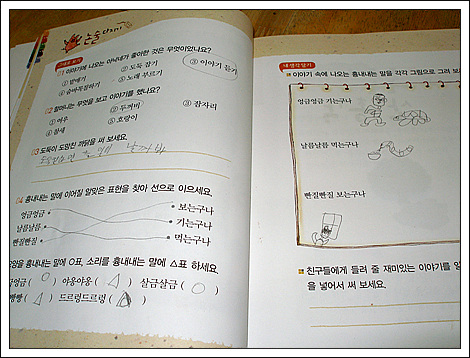 논술
01 이야기에 나오는 아낙네가 좋아한 것은 무엇이었나요?
① 밭매기 ② 도둑 잡기 ③ 이야기 듣기
④ 숨바꼭질하기 ⑤ 노래 부르기
02 할머니는 무엇을 보고 이야기를 했나요?
① 여우 ② 두꺼비 ③ 잠자리
④ 참새 ⑤ 호랑이
03 도둑이 도망친 까닭을 써 보세요.
04 흉내내는 말에 이어질 알맞은 표현을 찾아 선으로 이으세요.
엉금엉금 보는구나
날름날름 기는구나
삔질삔질 먹는구나
모양을 흉내내는 말에 O표, 소리를 흉내내는 말에 △표 하세요.
( O ) 야옹야옹( △ ) 살금살금( O )
( △ ) 드르렁드르렁( △ )
내 생각 담기
이야기 속에 나오는 흉내내는 말을 각각 그림으로 그려
엉금엉금 기는구나
날름날름 먹는구나
삔질삔질 보는구나
친구들에게 들려 줄 재미있는 이야기를
을 넣어서 써 보세요.